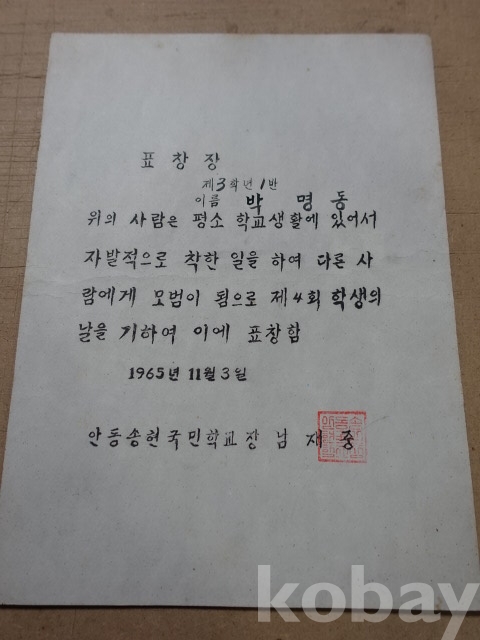 표창장
제3학년1반
이름 박명동
위의 사람은 평소 학교생활에 있어서
자발적으로 착한 일을 하여 다른 사
람에게 모범이 됨으로 제4회 학생의
날을 기하여 이에 표창함
1965년 11월 3일
안동송현국민학교장 남재중
kobay